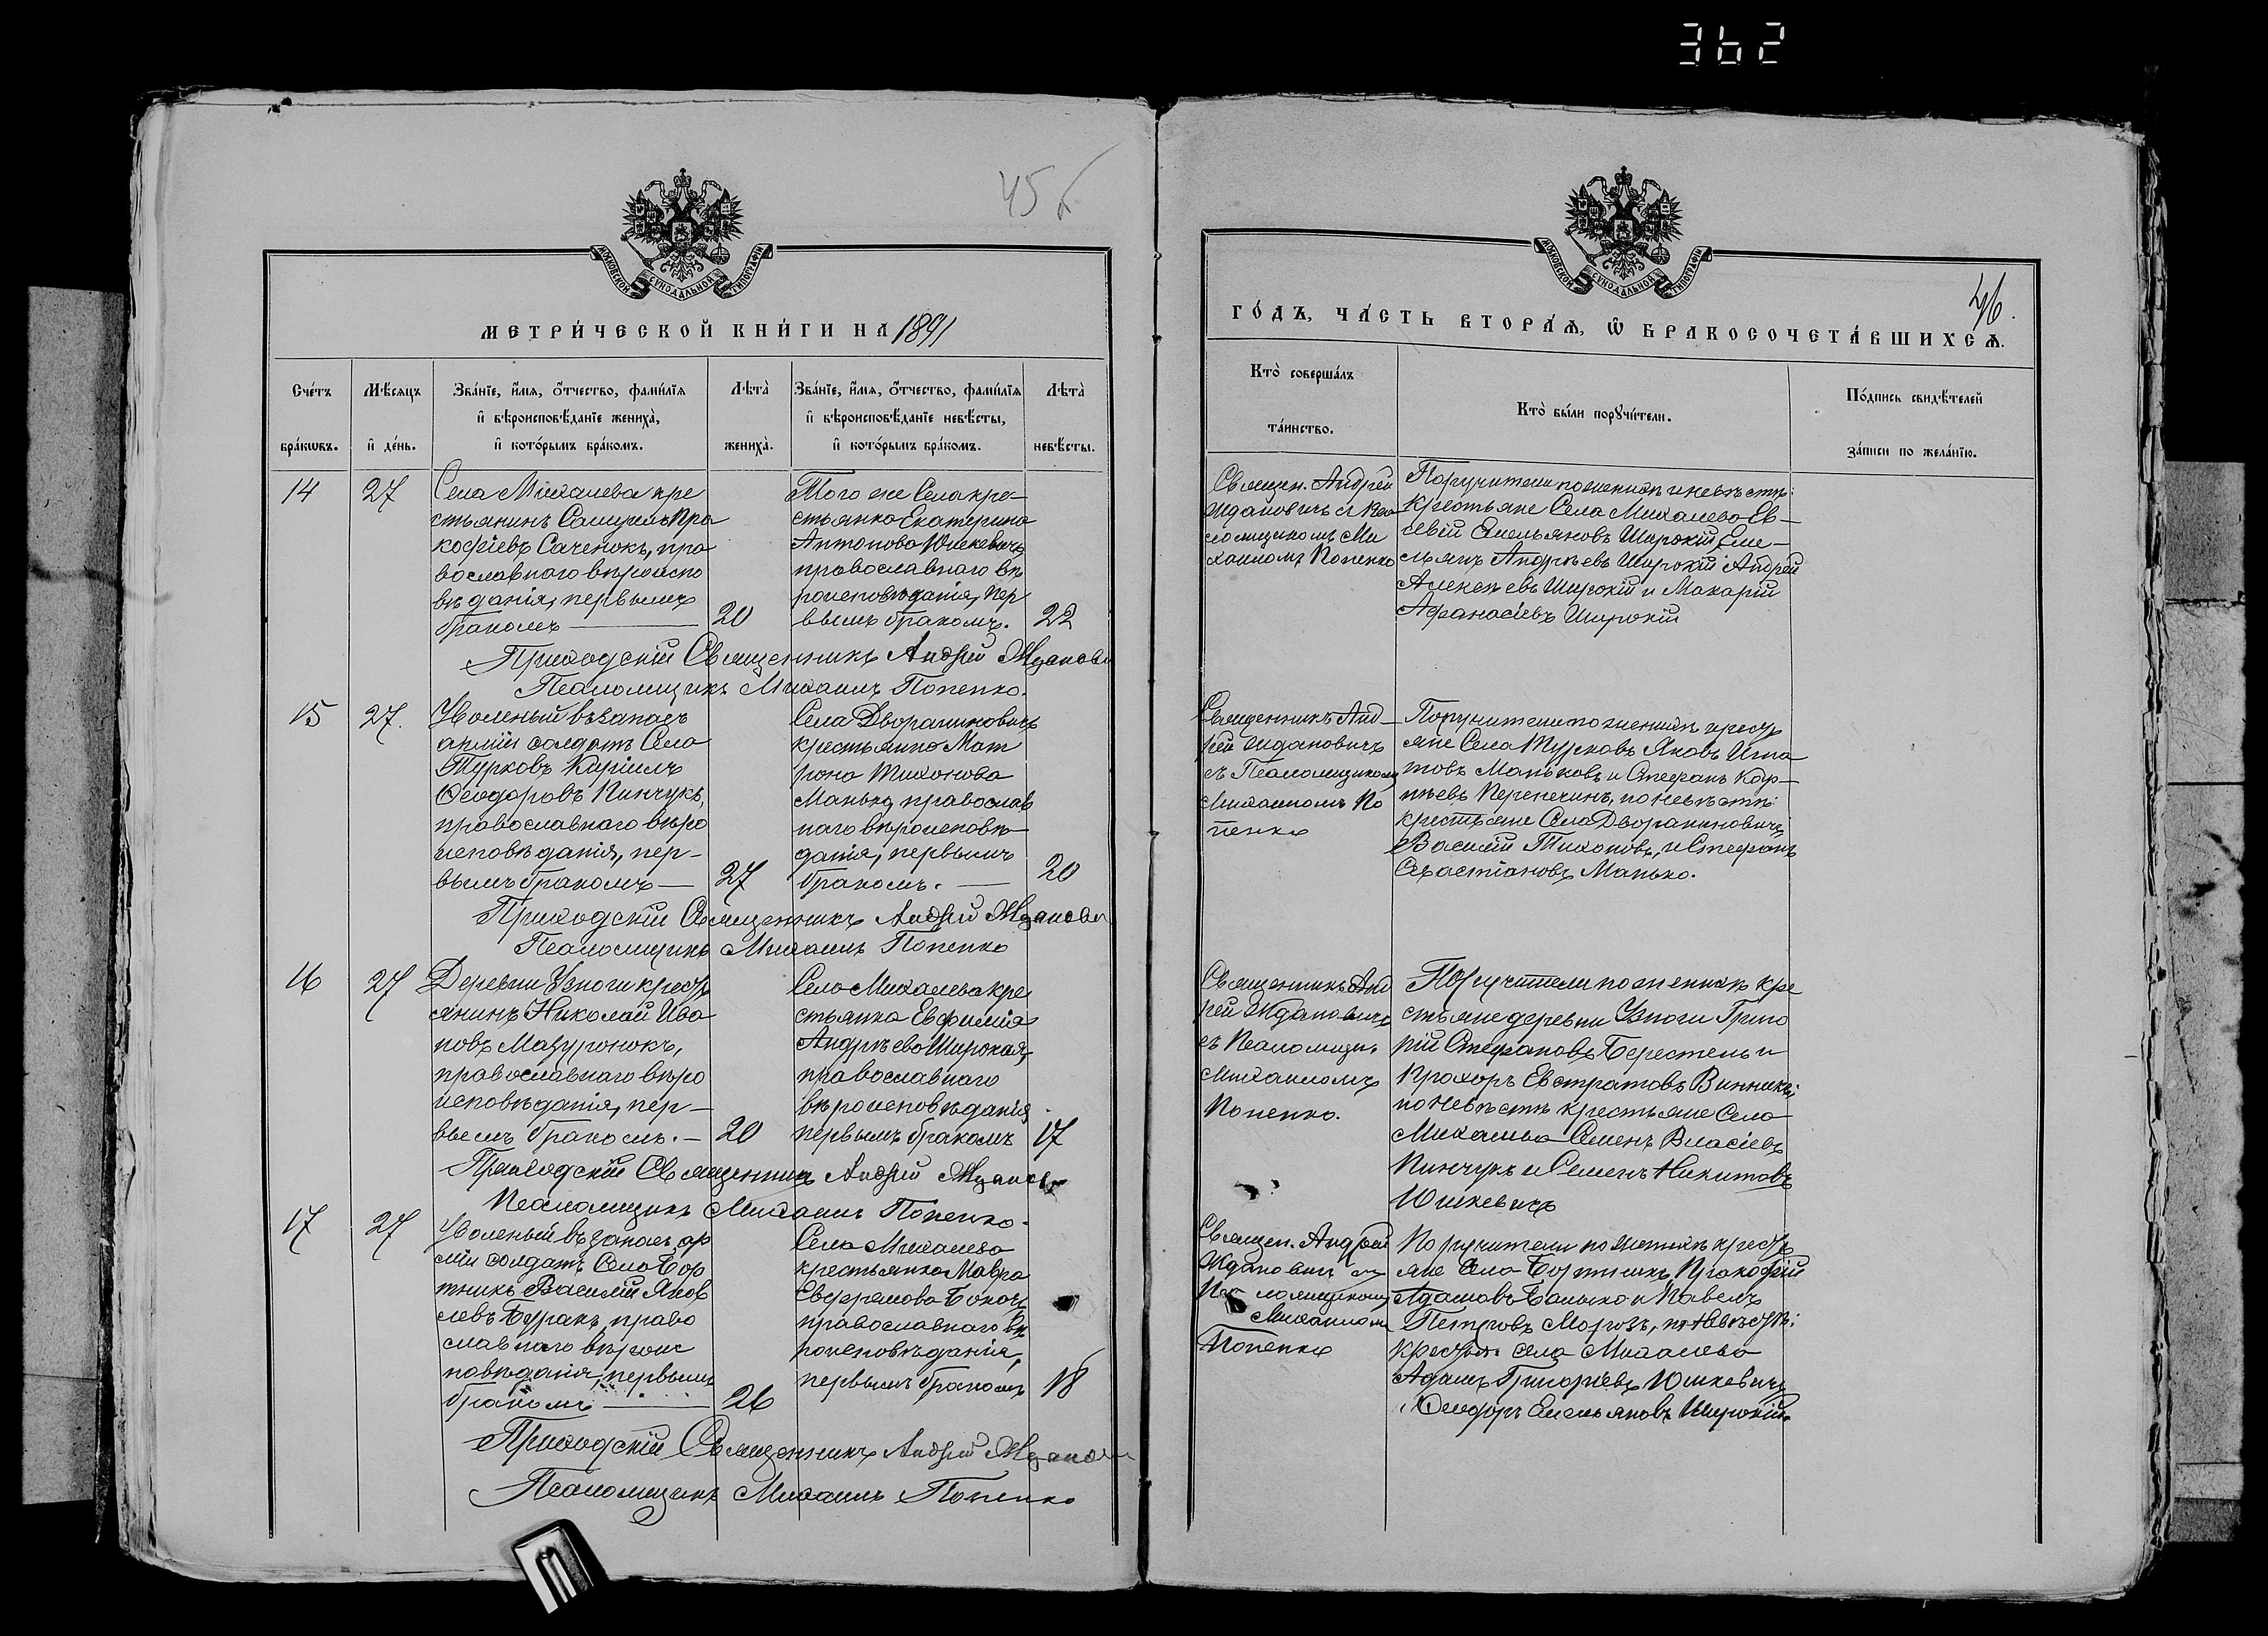 362
45 б
МОСКОВСКОЙ СУНОДАЛЬНОЙ ТИПОГРАФІИ
МЕТРИ́ЧЕСКОЙ КНИ́ГИ НА 1891
Сче́тъ бра́кѡвъ.
Мѣ́сяцъ и҆ де́нь.
Зва́нїе, и҆́мя, ѻ҆́тчество, фами́лїя
и҆ вѣроисповѣ́данїе жениха̀,
и҆ кото́рымъ бра́комъ.
Лѣ́та жениха̀.
Зва́нїе, и҆́мя, ѻ҆́тчество, фами́лїя
и҆ вѣроисповѣ́данїе невѣ́сты,
и҆ кото́рымъ бра́комъ.
Лѣ́та невѣ́сты.
14
27
Села Михалева кре
стьянинъ Самуилъ Про
кофіевъ Саченокъ, пра
вославнаго вѣроиспо
вѣданія, первымъ
бракомъ
20
Того же Села кре-
стьянка Екатерина
Антонова Юшкевичъ
православнаго вѣ
роисповѣданія, пер
вымъ бракомъ.
22
Приходскій Священникъ Андрей Жданови
Псаломщикъ Михаилъ Попенко.
15
27.
Уволеный въ запасъ
арміи солдатъ Села
Турковъ Кириллъ
Ѳеодоровъ Пинчукъ,
православнаго вѣро
исповѣданія, пер-
вымъ бракомъ
27
Села Дворашиновичъ
крестьянка Мат
рона Тихонова
Манько, православ
наго вѣроисповѣ-
данія, первымъ
бракомъ.
20
Приходскій Священникъ Андрей Жданови
Псаломщикъ Михаилъ Попенко
16
27
Деревни Узноги крестъ
янинъ Николай Ива
новъ Мазуронокъ,
православнаго вѣро
исповѣданія, пер-
вымъ бракомъ.
20
Села Михалева кре
стьянка Евфимія
Андрѣева Широкая,
православнаго
вѣроисповѣданія
первымъ бракомъ
17
Приходскій Священникъ Андрей Жданови
Псаломщикъ Михаилъ Попенко.
17
27
Уволеный въ запасъ ар
міи солдатъ Села Бор
тникъ Василій Яков
левъ Буракъ, право
славнаго вѣроис
повѣданія, первымъ
бракомъ
26
Села Михалева
крестьянка Мавра
Евфремова
православнаго вѣ
роисповѣданія,
первымъ бракомъ
18
Приходскій Священникъ Андрей Жданови
Псаломщикъ Михаилъ Попенко
МОСКОВСКОЙ СУНОДАЛЬНОЙ ТИПОГРАФІИ
46.
ГО́ДЪ, ЧА́СТЬ ВТОРА́Ѧ, Ѽ БРАКОСОЧЕТА́ВШИХСѦ.
Кто̀ соверша́лъ
та́инство.
Кто̀ бы́ли порꙋчи́тели.
По́дпись свидѣ́телей
за́писи по жела́нїю.
Священ. Андрей
Ждановичъ съ Пса
ломщикомъ Ми
хаиломъ Попенко
Поручители по женихѣ и невѣстѣ:
крестьяне Села Михалева Ев-
севій Емельяновъ Широкій, Еме-
льянъ Андрѣевъ Широкій Андрей
Алексѣевъ Широкій и Макарій
Афанасіевъ Широкій
Священникъ Анд-
рей Ждановичъ
съ Псаломщикомъ
Михаиломъ По
пенко
Поручители по женихѣ крестъ
яне Села Турковъ Яковъ Игна
товъ Маньковъ и Стефанъ Кор-
нѣевъ Перепечинъ, по невѣстѣ:
крестьяне Села Дворашиновичъ
Василій Тихоновъ, и Стефанъ
Севастіановъ Манько.
Священникъ Анд
рей Ждановичъ
съ Псаломщик.
Михаиломъ
Попенко.
Поручители по женихѣ кре
стьяне деревни Узноги Григо
рій Стефановъ Берестень и
Прохоръ Евстратовъ Винникъ;
по невѣстѣ крестьяне Села
Михалева Семенъ Власіевъ
Пинчукъ и Семенъ Никитовъ
Юшкевичъ
Священ. Андрей
Ждановичъ съ
Псаломщикомъ
Михаиломъ
Попенко
Поручители по женихѣ крестъ
яне Села Бортникъ Прокофій
Адамовъ и Павелъ
Петровъ Морозъ, по невѣстѣ:
крестьян. села Михалева
Адамъ Григорьевъ Юшкевичъ
Ѳеодоръ Емельяновъ Широкій.